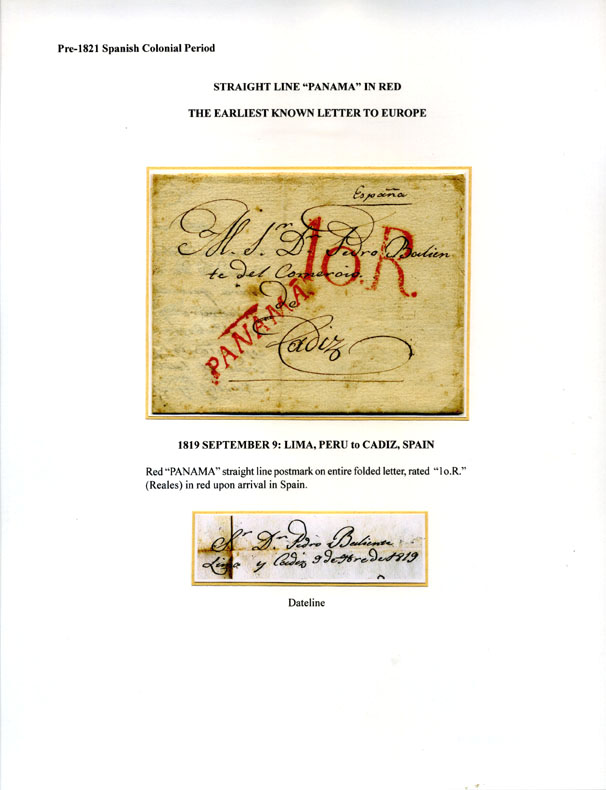 Pre-1821 Spanish Colonial Period
STRAIGHT LINE “PANAMA” IN RED
THE EARLIEST KNOWN LETTER TO EUROPE
España
M. Sr. Dn. Pedro Balien
te del Comercio.
1o.R.
de
PANAMÁ
Cadiz
1819 SEPTEMBER 9: LIMA, PERU to CADIZ, SPAIN
Red “PANAMA” straight line postmark on entire folded letter, rated “1o.R.”
(Reales) in red upon arrival in Spain.
Sr. Dn. Pedro Baliente
Lima y Cadiz 9 de 9bre de 1819
Dateline